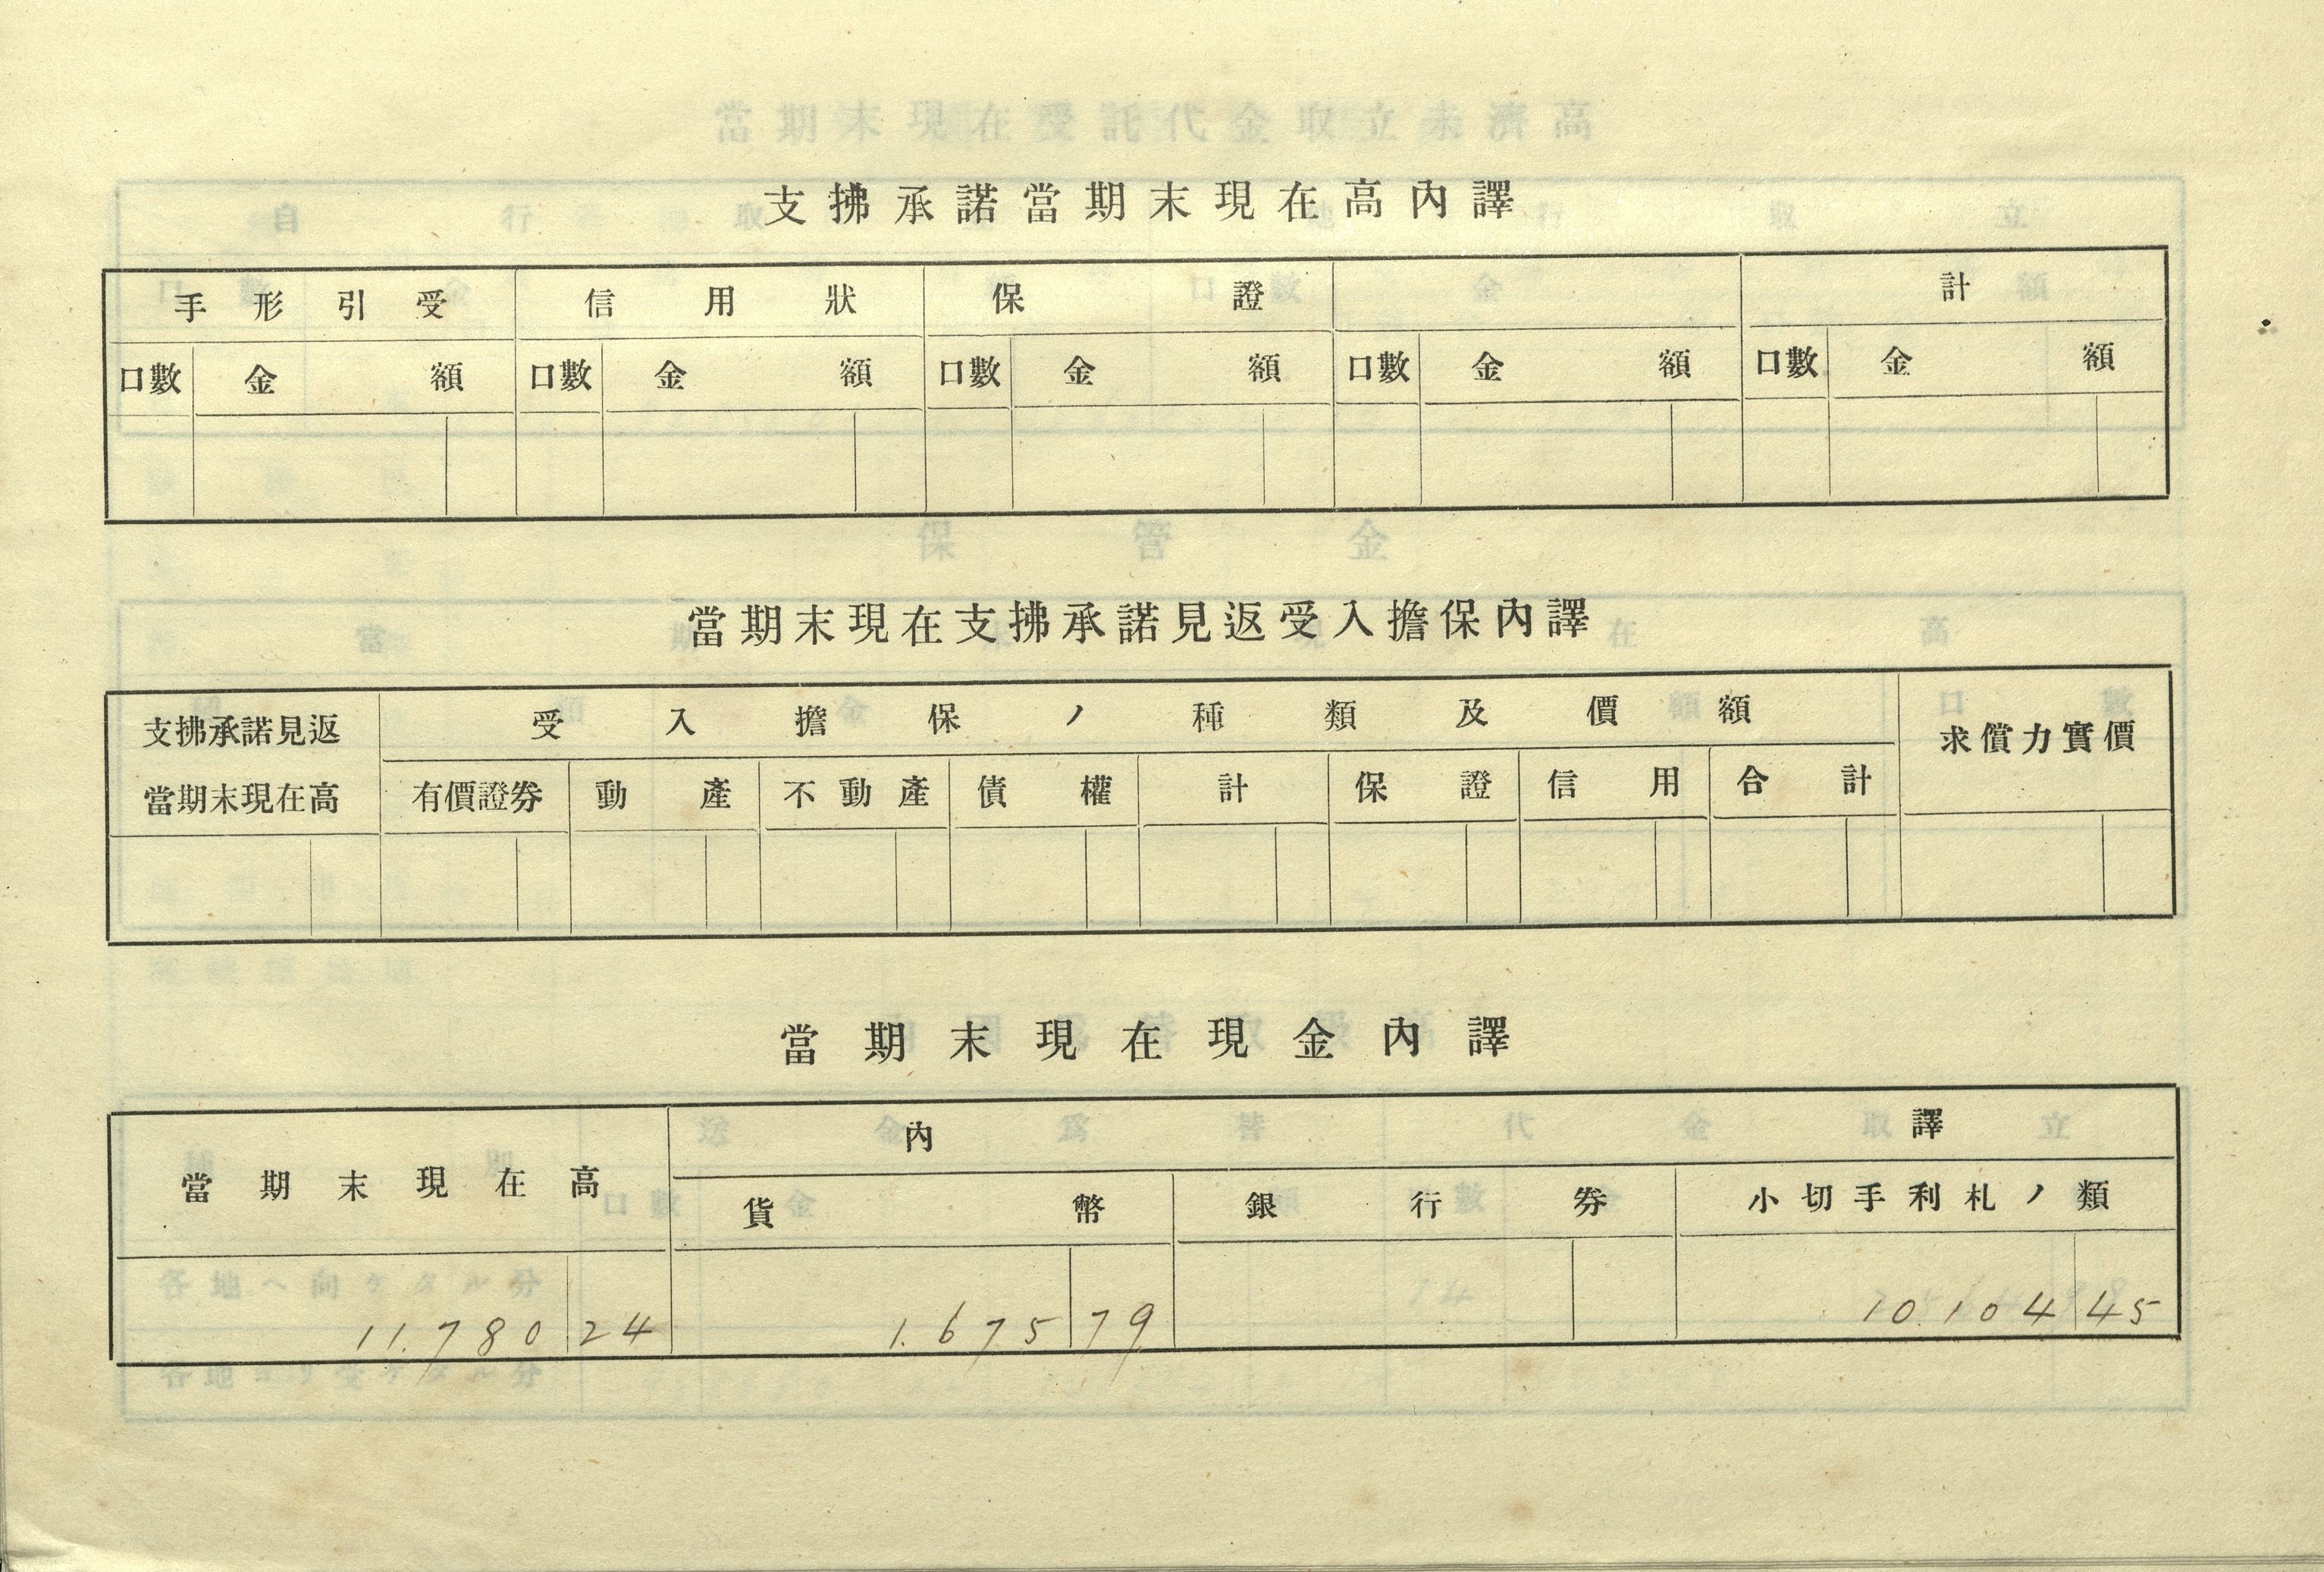 支拂承諾當期末現在高內譯
手形引受 信用狀 保證 計
口數 金額 口數 金額 口數 金額 口數 金額 口數 金額
當期末現在支拂承諾見返受入擔保內譯
支拂承諾見返 受入擔保ノ種類及價額 求償力實價
當期末現在高 有價證券 動產 不動產 債權 計 保證 信用 合計
當期末現在現金內譯
當期末現在高 內譯
貨幣 銀行券 小切手利札ノ類
11.780 24 1.675 79 10.104 45